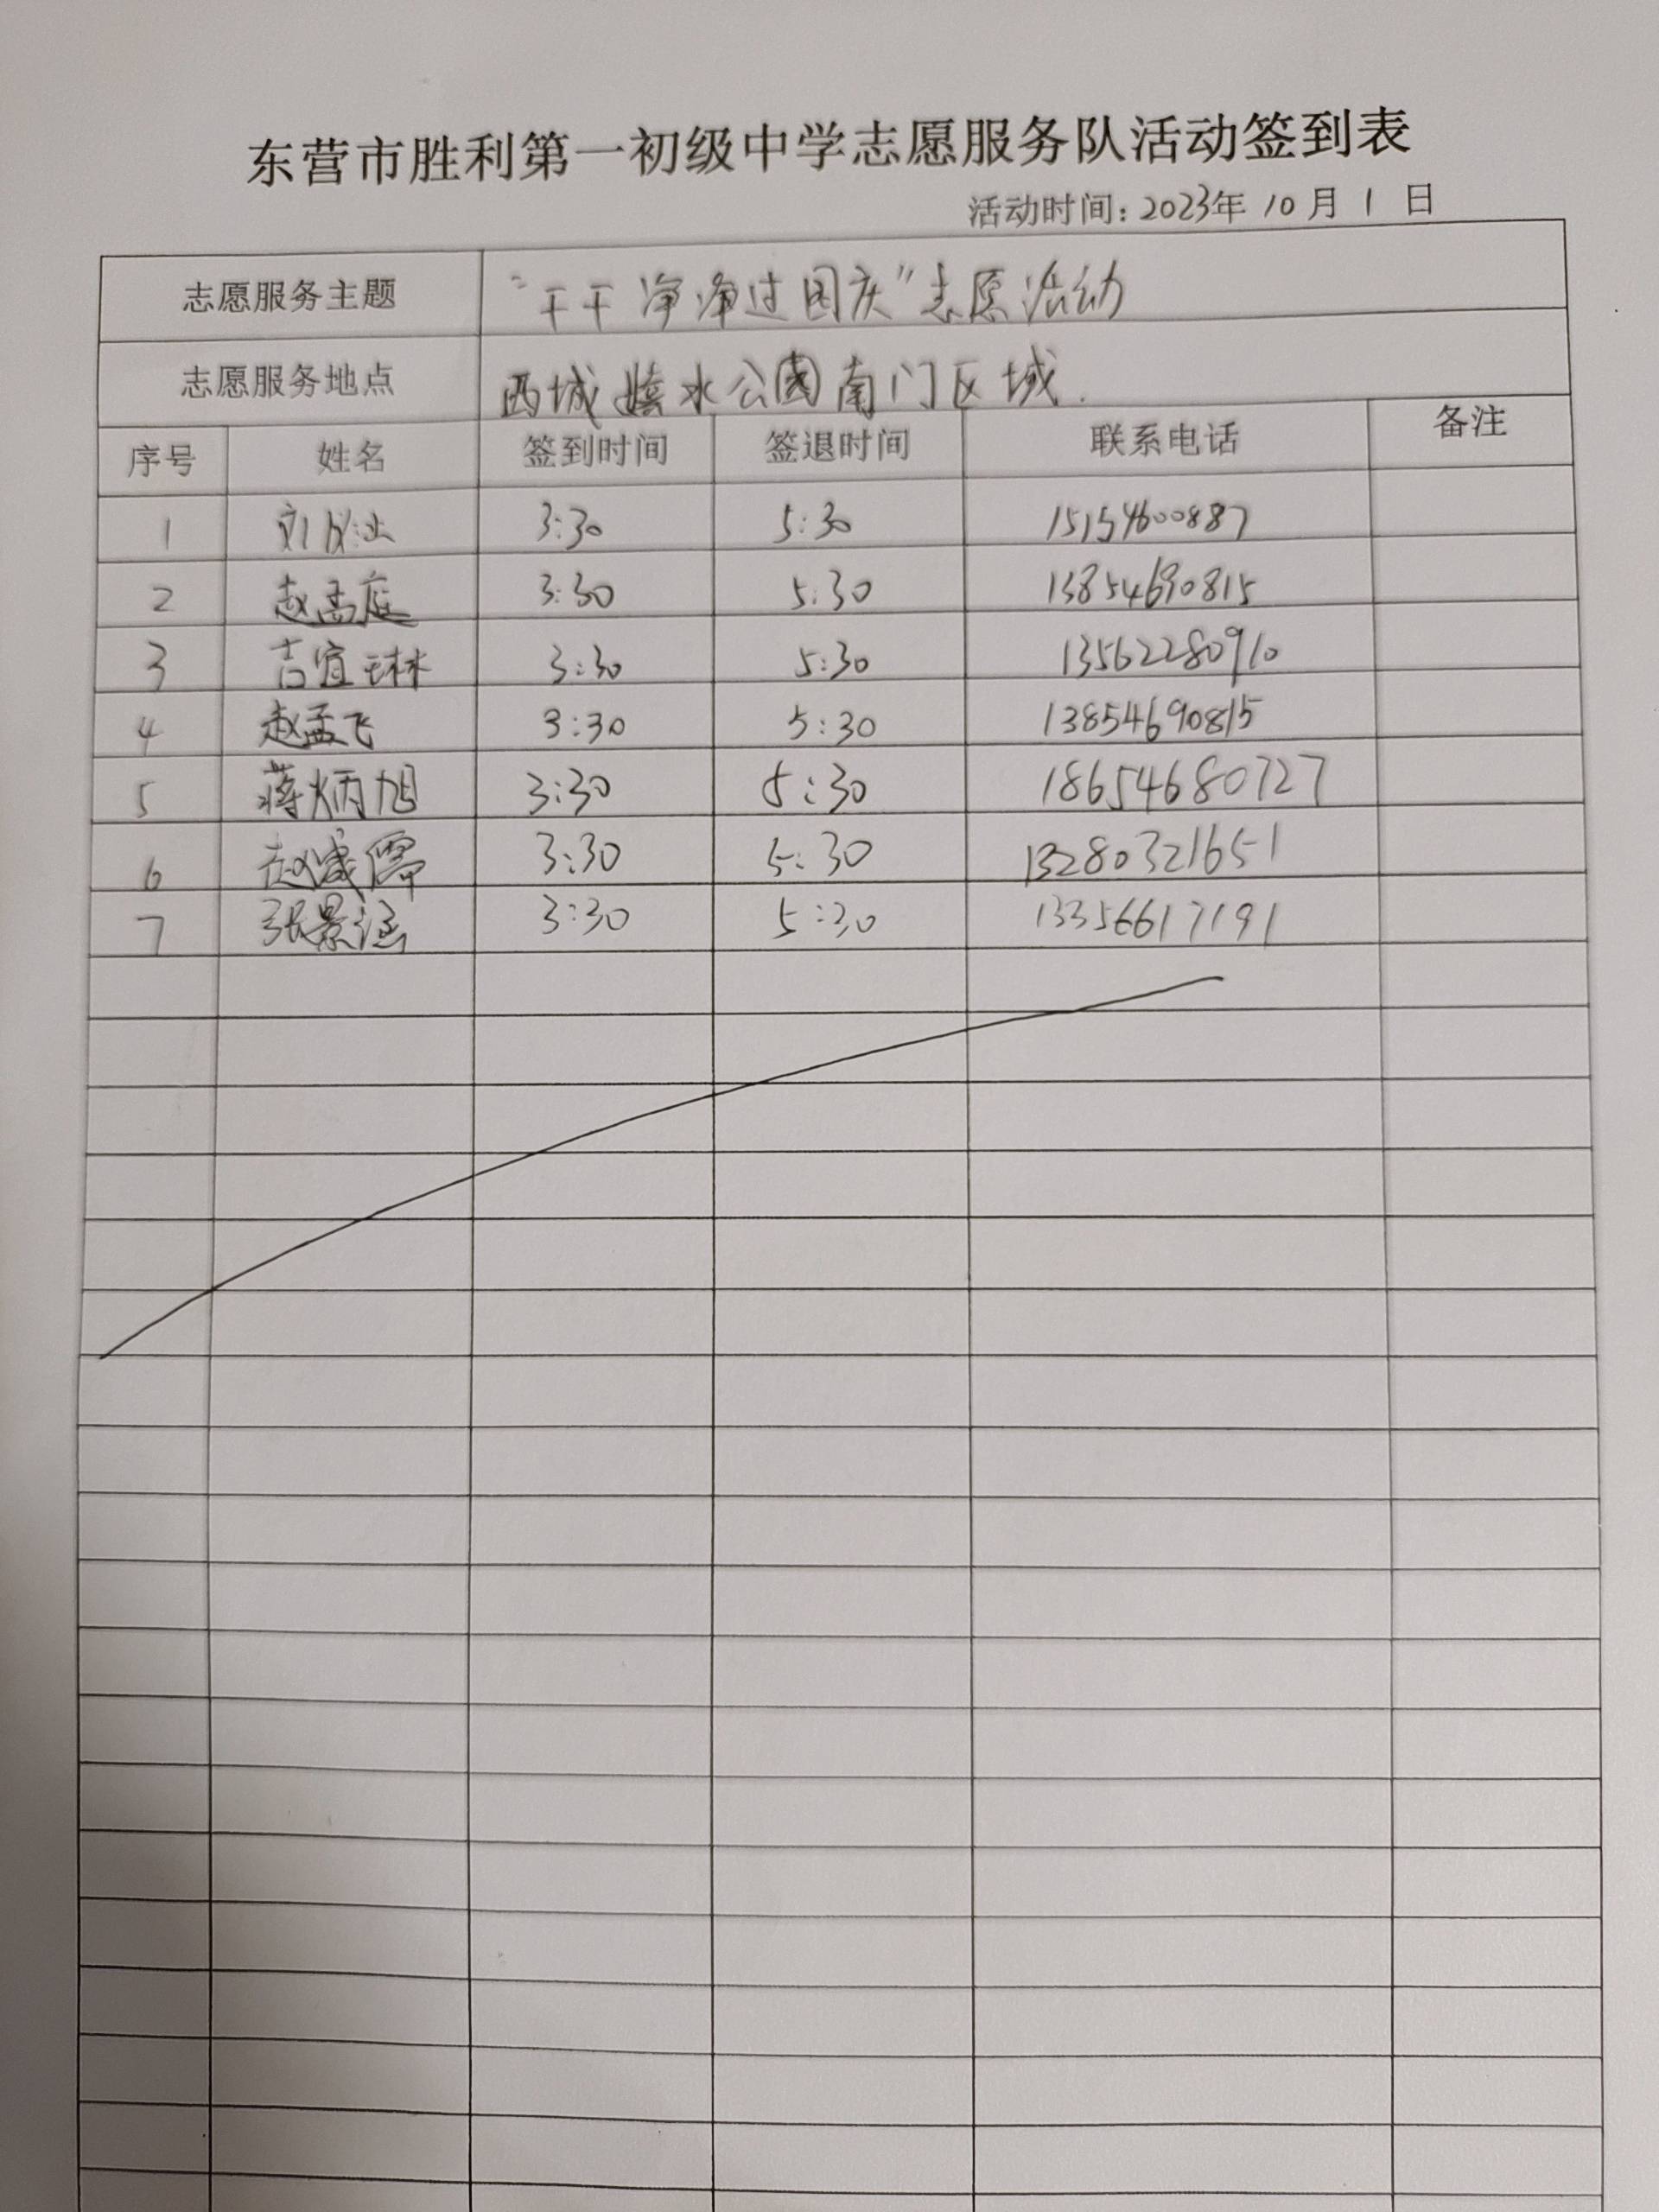 东营市胜利第一初级中学志愿服务队活动签到表
活动时间：2023年 10 月 1 日
志愿服务主题 “干干净净过国庆”志愿活动
志愿服务地点 西城嬉水公园南门区域.
序号 姓名 签到时间 签退时间 联系电话 备注
1 刘 3:30 5:30 15154600887
2 赵孟庭 3:30 5:30 13854690815
3 吉宜琳 3:30 5:30 13562280910
4 赵孟飞 3:30 5:30 13854690815
5 蒋炳旭 3:30 5:30 18654680727
6 赵 儒 3:30 5:30 13280321651
7 张景涵 3:30 5:30 13356617191